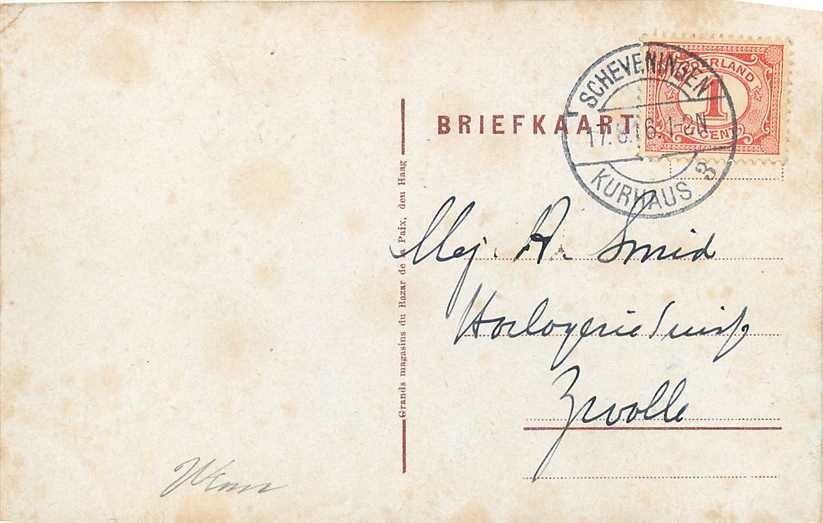 BRIEFKAART
SCHEVENINGEN
17.8.16.1-2N
KURHAUS 3
NEDERLAND
1
CENT
Mej. A. Smid
Horlogerie Suisse
Zwolle
Grands magasins du Bazar de la Paix, den Haag